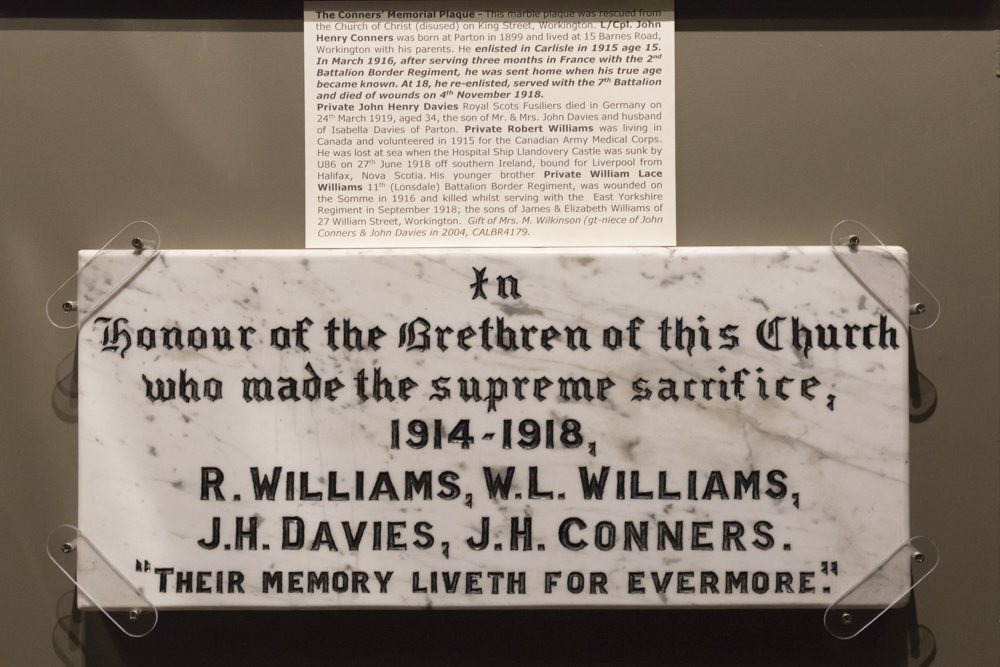 The Conners' Memorial Plaque - This marble plaque was rescued from
the Church of Christ (disused) on King Street, Workington. L/Cpl. John
Henry Conners was born at Parton in 1899 and lived at 15 Barnes Road,
Workington with his parents. He enlisted in Carlisle in 1915 age 15.
In March 1916, after serving three months in France with the 2nd
Battalion Border Regiment, he was sent home when his true age
became known. At 18, he re-enlisted, served with the 7th Battalion
and died of wounds on 4th November 1918.
Private John Henry Davies Royal Scots Fusiliers died in Germany on
24th March 1919, aged 34, the son of Mr. & Mrs. John Davies and husband
of Isabella Davies of Parton. Private Robert Williams was living in
Canada and volunteered in 1915 for the Canadian Army Medical Corps.
He was lost at sea when the Hospital Ship Llandovery Castle was sunk by
U86 on 27th June 1918 off southern Ireland, bound for Liverpool from
Halifax, Nova Scotia. His younger brother Private William Lace
Williams 11th (Lonsdale) Battalion Border Regiment, was wounded on
the Somme in 1916 and killed whilst serving with the East Yorkshire
Regiment in September 1918; the sons of James & Elizabeth Williams of
27 William Street, Workington. Gift of Mrs. M. Wilkinson (gt-niece of John
Conners & John Davies in 2004, CALBR4179.
In
Honour of the Brethren of this Church
who made the supreme sacrifice,
1914-1918,
R. WILLIAMS, W.L. WILLIAMS,
J.H. DAVIES, J.H. CONNERS.
"THEIR MEMORY LIVETH FOR EVERMORE."